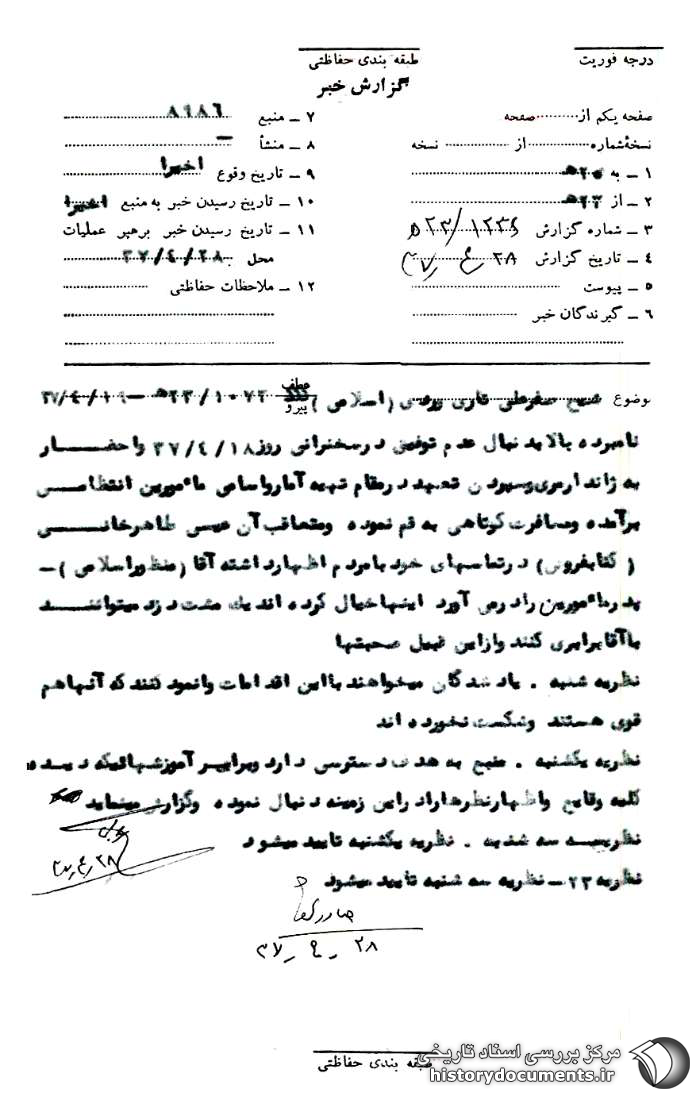 درجه فوریت
طبقه بندی حفاظتی
گزارش خبر
صفحه یکم از ............ صفحه
نسخهٔ شماره ............ از ............ نسخه
۱ – به ۲۰ه‍
۲ – از ۲۳ه‍
۳ – شماره گزارش ۲۳/۱۲۳۶ه‍
۴ – تاریخ گزارش ۲۸ ر ۴ ر ۳۷
۵ – پیوست
۶ – گیرندگان خبر
۷ – منبع ۸۹۸۶
۸ – منشأ –
۹ – تاریخ وقوع اخیرا
۱۰ – تاریخ رسیدن خبر به منبع اخیرا
۱۱ – تاریخ رسیدن خبر برهبر عملیات
محل ۳۷/۴/۲۸
۱۲ – ملاحظات حفاظتی
موضوع شیخ صفرعلی (اسلامی)
عطف
پیرو ۲۳/۱۰۷۲ه‍ – ۳۷/۴/۱۹
نامبرده بالا بدنبال عدم توفیق در سخنرانی روز ۳۷/۴/۱۸ واحضار
به ژاندارمری وسپردن تعهد در مقام تهیه آمار واسامی مامورین انتظامی
برآمده ومسافرت کوتاهی به قم نموده ومتعاقب آن عیسی طاهرخانی
(کتابفروش) در تماسهای خود با مردم اظهار داشته آقا (منظور اسلامی) –
پدر مامورین را در می آورد اینها خیال کرده اند یك مشت دزد میتوانند
با آقا برابری کنند واز این قبیل صحبتها
نظریه شنبه . یاد شدگان میخواهند با این اقدامات وانمود کنند که آنها هم
قوی هستند وشکست نخورده اند
نظریه یکشنبه . منبع به هدف دسترسی دارد وبرابر آموزشهائیکه دیده
کلیه وقایع واظهار نظرها را در این زمینه دنبال نموده وگزارش مینماید
نظریه سه شنبه . نظریه یکشنبه تایید میشود
۲۸ ر ۴ ر ۳۷
نظریه ۲۳ – نظریه سه شنبه تایید میشود
۲۸ – ۴ – ۳۷
طبقه بندی حفاظتی
مرکز بررسی اسناد تاریخی
historydocuments.ir